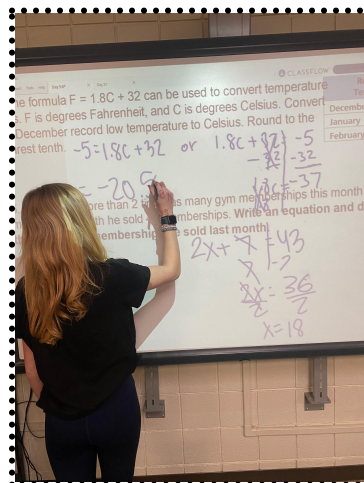 CLASSFLOW
he formula F = 1.8C + 32 can be used to convert temperature
. F is degrees Fahrenheit, and C is degrees Celsius. Convert
December record low temperature to Celsius. Round to the
rest tenth.
-5=1.8C+32 or 1.8C+32=-5
-32 -32
1.8C=-37
-20.5
ore than 2 as many gym memberships this month
h he sold memberships. Write an equation and
memberships he sold last month.
2X+7=43
-7 -7
2X=36
2 2
X=18
Decembe
January
February